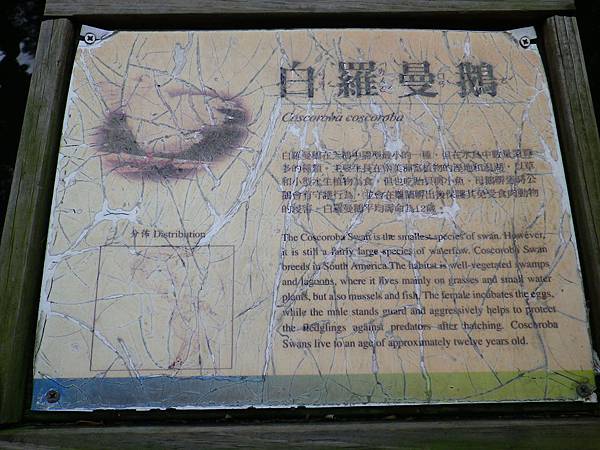 白羅曼鵝
Coscoroba coscoroba
白羅曼鵝在天鵝中體型最小的一種，但在水鳥中數量還算
多的種類，主要生長在南美洲富植物的溼地和潟湖，以草
和小型水生植物為食，但也吃貽貝與小魚，母鵝孵蛋時公
鵝會有守護行為，並會在雛鵝孵出後保護其免受食肉動物
的侵害。白羅曼鵝平均壽命為12歲。
分佈 Distribution
The Coscoroba Swan is the smallest species of swan. However,
it is still a fairly large species of waterfow. Coscoroba Swan
breeds in South America.The habitat is well-vegetated swamps
and lagoons, where it lives mainly on grasses and small water
plants, but also mussels and fish. The female incubates the eggs,
while the male stands guard and aggressively helps to protect
the fledglings against predators after hatching. Coscoroba
Swans live to an age of approximately twelve years old.